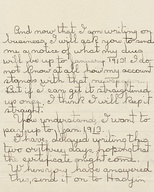 And now that I am writing on
business, I will ask you to send
me a notice of what my dues
will be up to January 1913. I do
not know at all how my account
stands with that
But if I can get it straightened
up once, I think I will keep it
straight.
You understand, I want to
pay up to Jan. 1913.
I have delayed writing that
two or three days, hoping that
the certificate might come.
When you have answered
this, send it on to